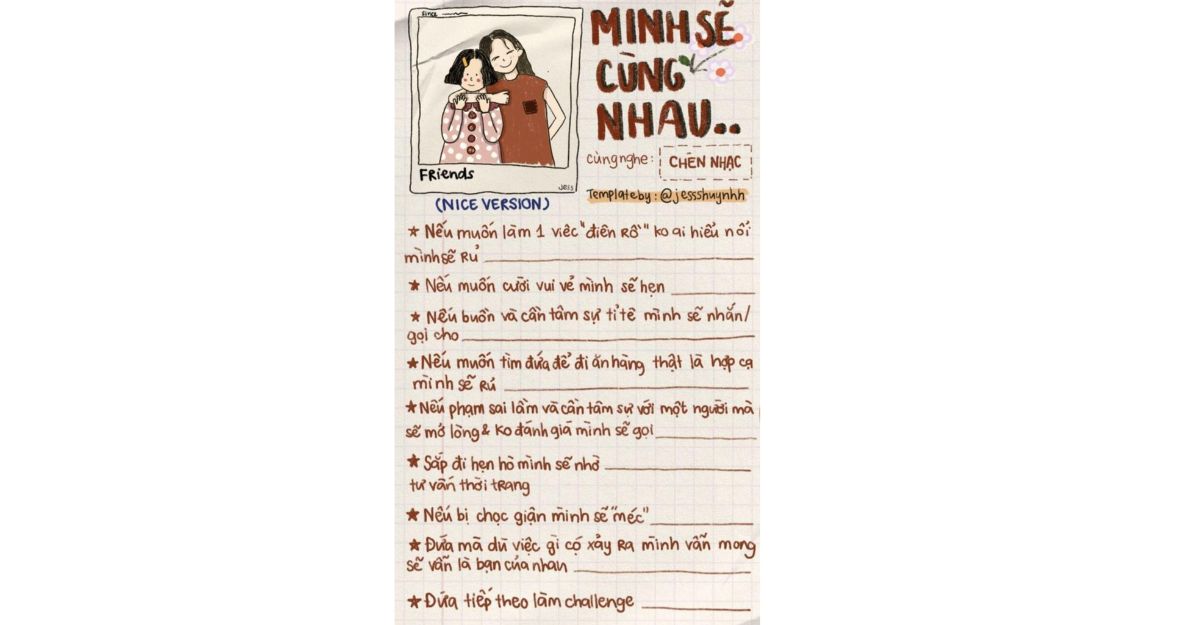 since
MINH SẼ
CÙNG
NHAU..
cùng nghe: CHÈN NHẠC
FRiends
Jess
Template by: @jessshuynhh
(NICE VERSION)
★ Nếu muốn làm 1 viêc "điên Rồ" ko ai hiểu nổi
mình sẽ Rủ
★ Nếu muốn cười vui vẻ mình sẽ hẹn
★ Nếu buồn và cần tâm sự tỉ tê mình sẽ nhắn/
gọi cho
★ Nếu muốn tìm đứa để đi ăn hàng thật là hợp cạ
mình sẽ Rủ
★ Nếu phạm sai lầm và cần tâm sự với một người mà
sẽ mở lòng & ko đánh giá mình sẽ gọi
★ Sắp đi hẹn hò mình sẽ nhờ
tư vấn thời trang
★ Nếu bị chọc giận mình sẽ "méc"
★ Đứa mà dù việc gì có xảy Ra mình vẫn mong
sẽ vẫn là bạn của nhau
★ Đứa tiếp theo làm challenge